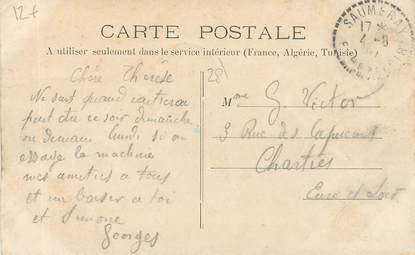 12+
CARTE POSTALE
A utiliser seulement dans le service intérieur (France, Algérie, Tunisie)
SAUMERAY
17
4-8
28
Chère Thérèse
Ne sait quand
peut être ce soir dimanche
ou demain lundi si on
essaye la machine
mes amitiés a tous
et un baiser a toi
et Simone
Georges
Mme G. Victor
9 Rue des
Chartres
Eure et Loir